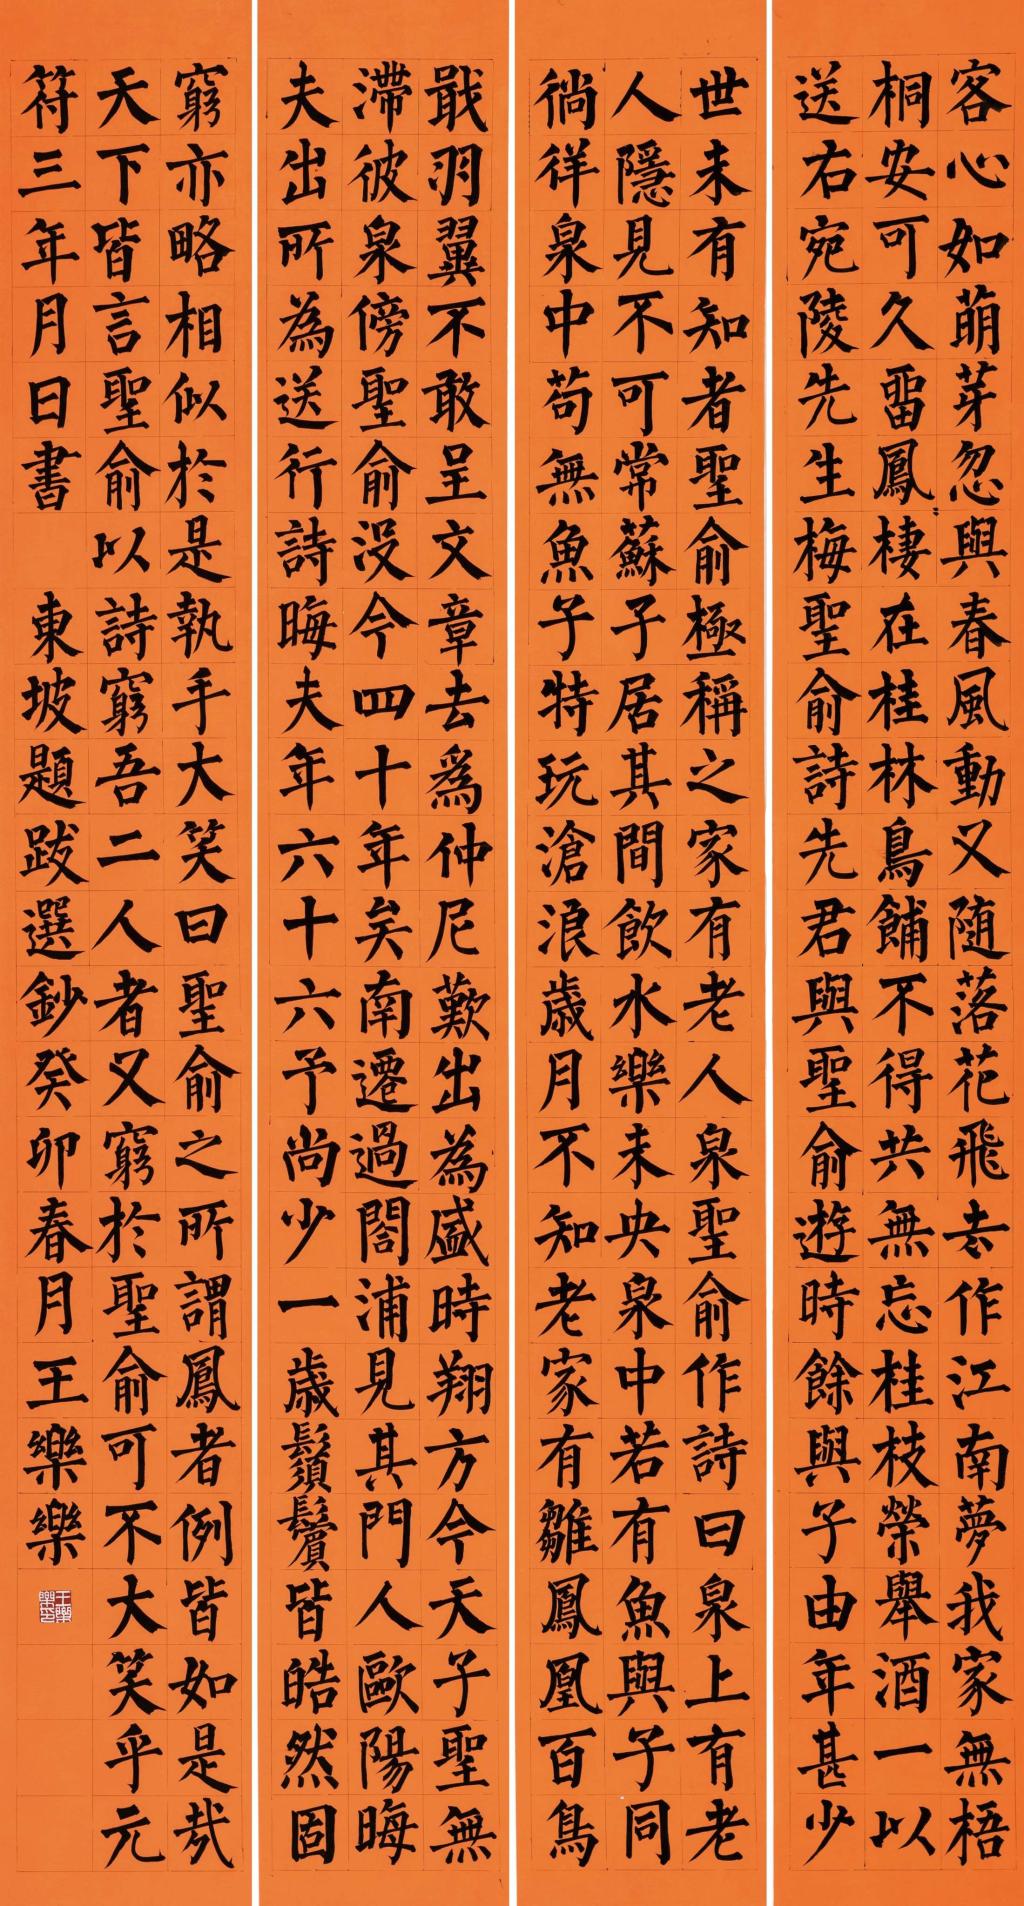 客心如萌芽忽與春風動又随落花飛去作江南夢我家無梧
桐安可久畱鳳棲在桂林鳥餔不得共無忘桂枝榮舉酒一以
送右宛陵先生梅聖俞詩先君與聖俞遊時餘與子由年甚少
世未有知者聖俞極稱之家有老人泉聖俞作詩曰泉上有老
人隱見不可常蘇子居其間飲水樂未央泉中若有魚與子同
徜徉泉中苟無魚子特玩滄浪歲月不知老家有雛鳳凰百鳥
戢羽翼不敢呈文章去爲仲尼歎出為盛時翔方今天子聖無
滯彼泉傍聖俞没今四十年矣南遷過閤浦見其門人歐陽晦
夫出所為送行詩晦夫年六十六予尚少一歲鬚鬢皆皓然固
窮亦略相似於是執手大笑曰聖俞之所謂鳳者例皆如是哉
天下皆言聖俞以詩窮吾二人者又窮於聖俞可不大笑乎元
符三年月日書 東坡題跋選鈔癸卯春月王樂樂
王樂樂印